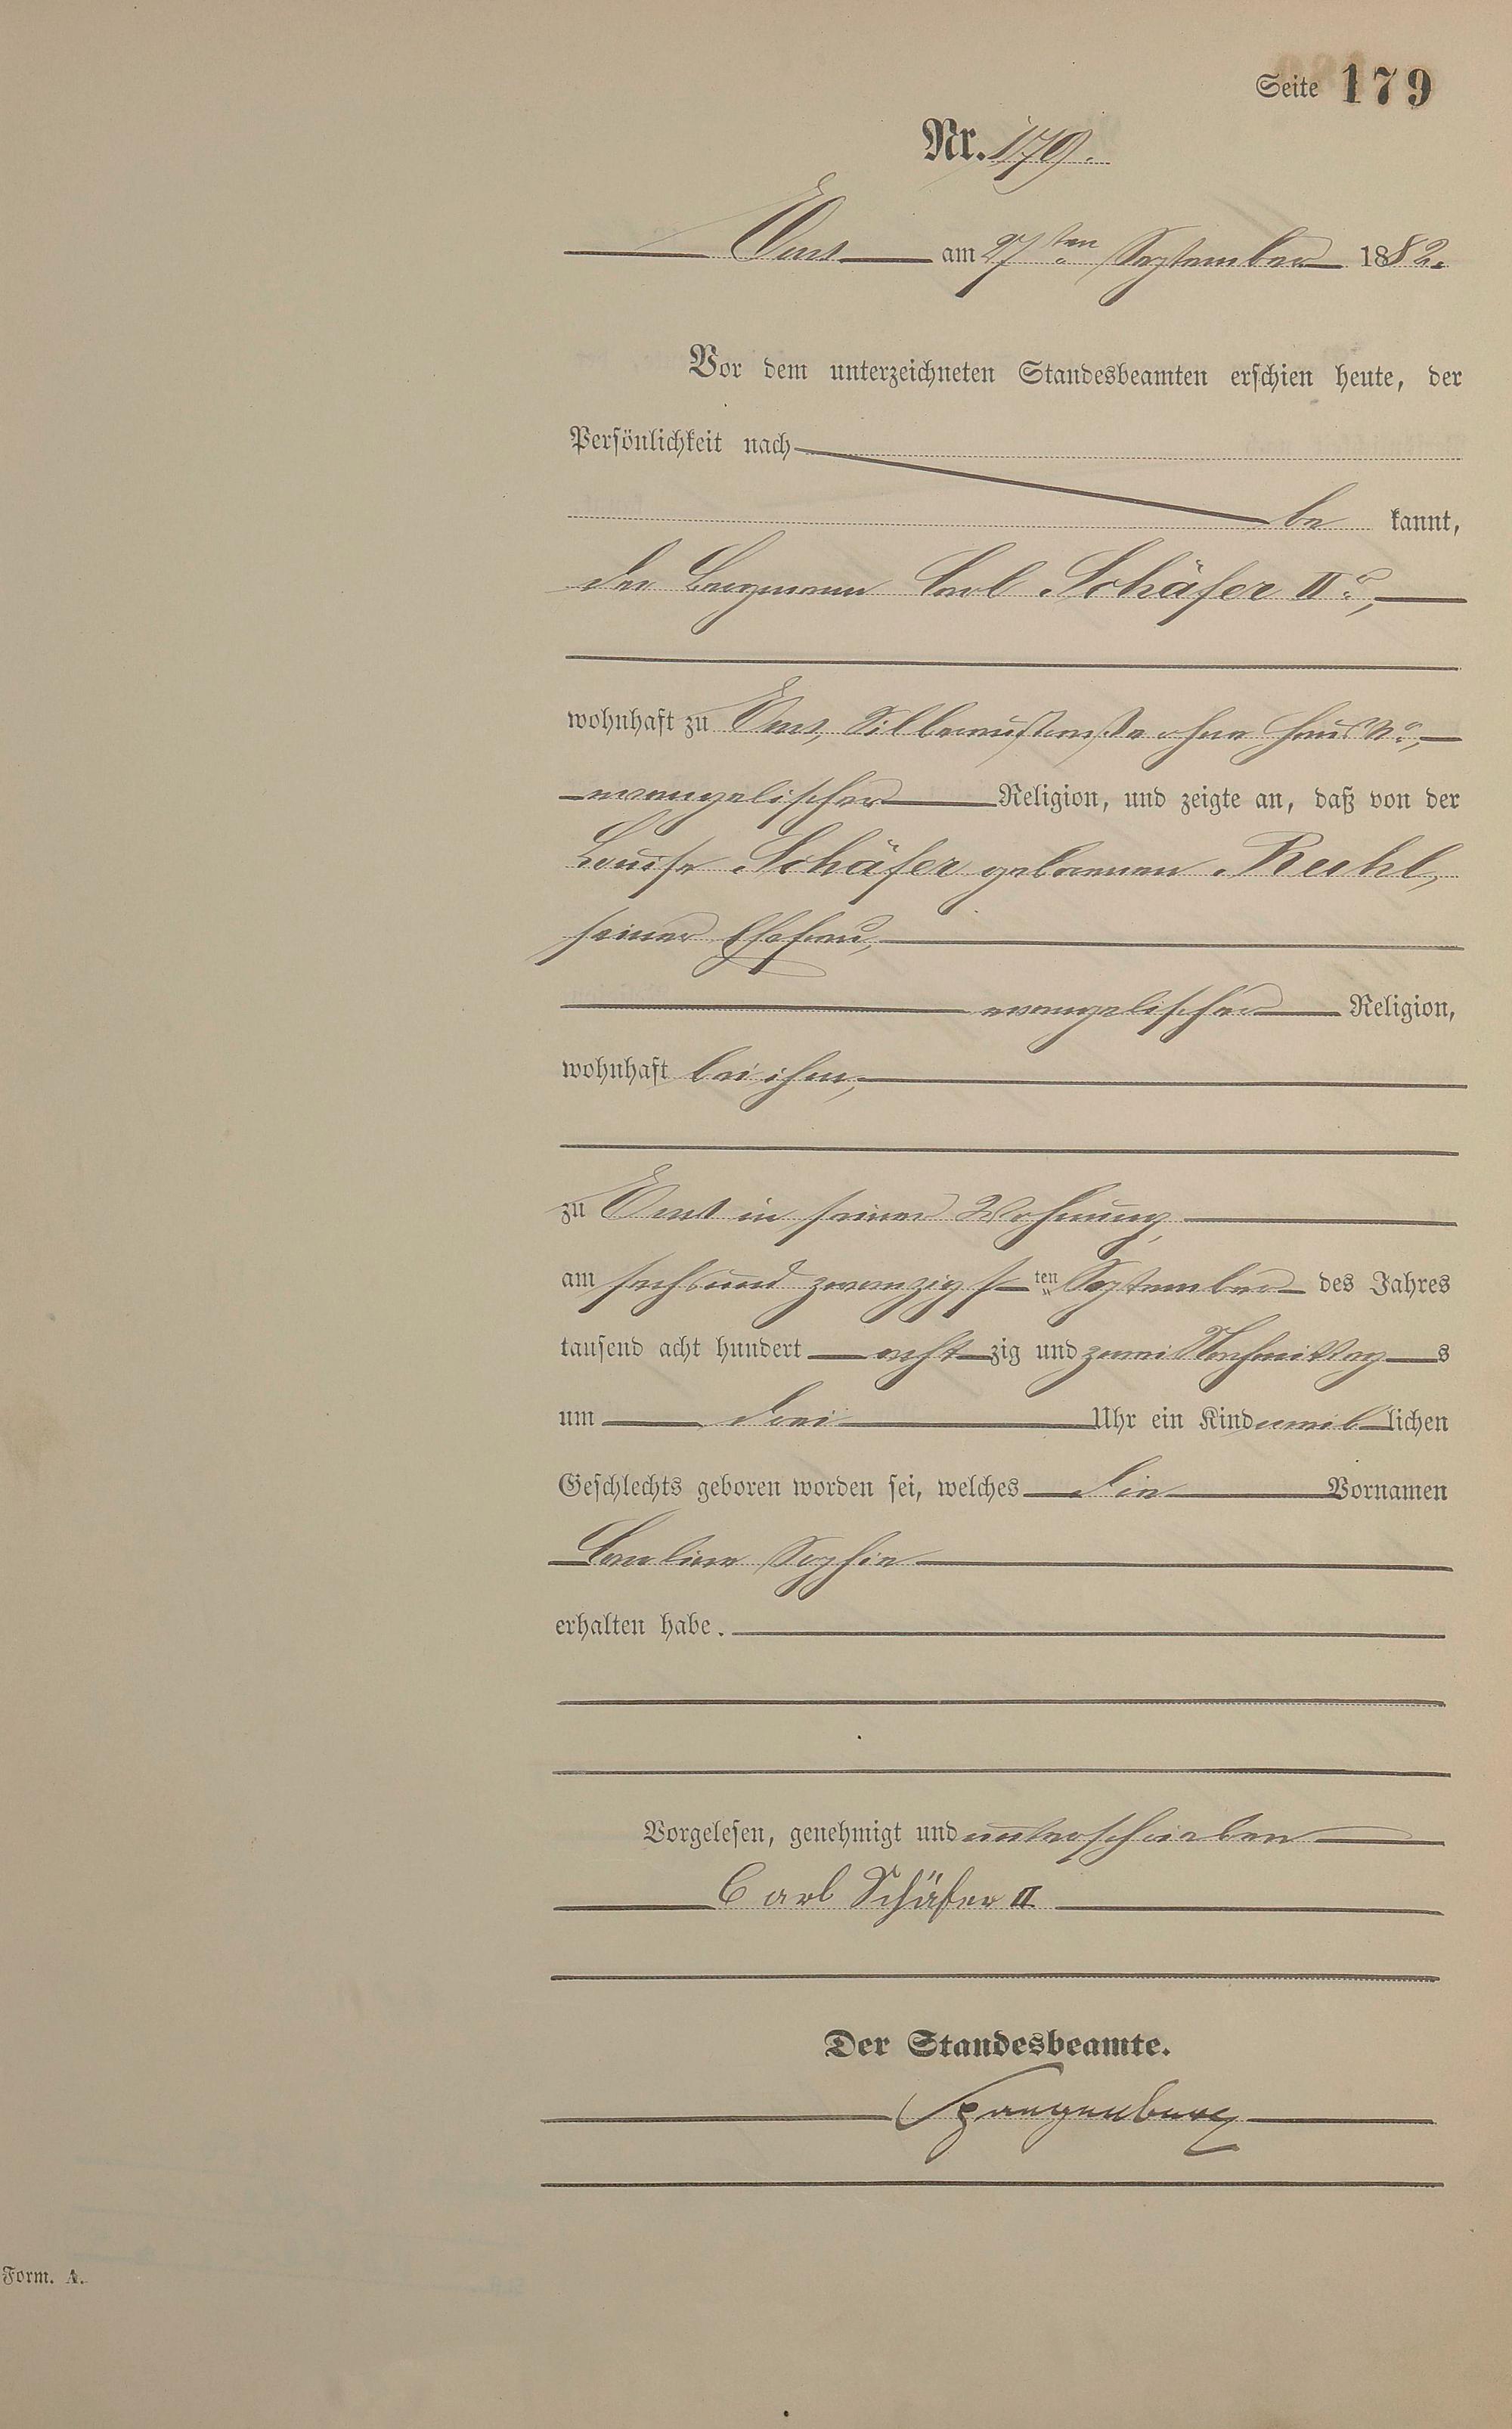 Seite 179
Nr. 179.
Ems am 27ten September 1882.
Vor dem unterzeichneten Standesbeamten erschien heute, der
Persönlichkeit nach
be kannt,
der Bergmann Carl Schäfer IIr,
wohnhaft zu Ems, Silberaustraße ohne Haus No,
evangelischer Religion, und zeigte an, daß von der
Louise Schäfer geborenen Ruhl,
seiner Ehefrau,
evangelischer Religion,
wohnhaft bei ihm,
zu Ems in seiner Wohnung,
am sechsund zwanzigsten September des Jahres
tausend acht hundert achtzig und zwei Nachmittags
um drei Uhr ein Kind weiblichen
Geschlechts geboren worden sei, welches die Vornamen
Caroline Sophie
erhalten habe.
Vorgelesen, genehmigt und unterschrieben
Carl Schäfer II
Der Standesbeamte.
Spangenberg
Form. A.